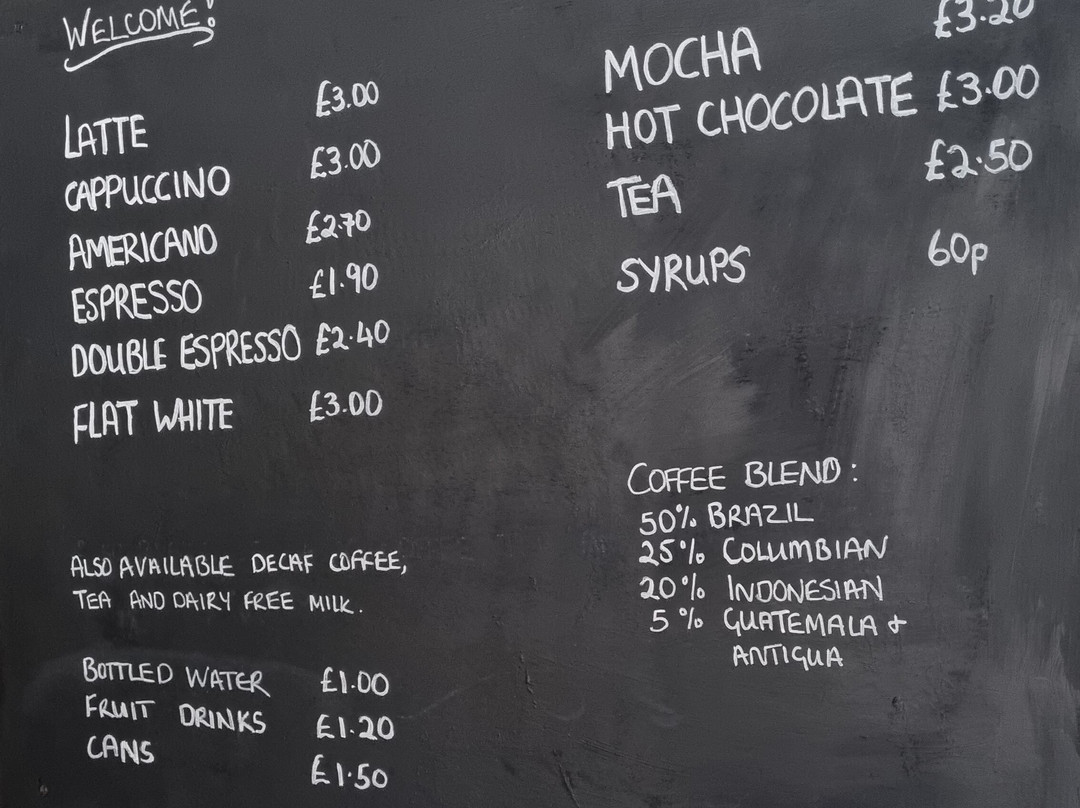 WELCOME!
LATTE £3.00
CAPPUCCINO £3.00
AMERICANO £2.70
ESPRESSO £1.90
DOUBLE ESPRESSO £2.40
FLAT WHITE £3.00
ALSO AVAILABLE DECAF COFFEE,
TEA AND DAIRY FREE MILK.
BOTTLED WATER £1.00
FRUIT DRINKS £1.20
CANS £1.50
MOCHA £3.20
HOT CHOCOLATE £3.00
TEA £2.50
SYRUPS 60p
COFFEE BLEND:
50% BRAZIL
25% COLUMBIAN
20% INDONESIAN
5% GUATEMALA &
ANTIGUA